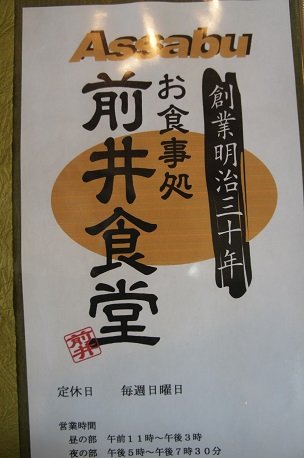 Assabu
創業明治三十年
お食事処
前井食堂
前井
定休日　毎週日曜日
営業時間
昼の部　午前１１時～午後３時
夜の部　午後５時～午後７時３０分